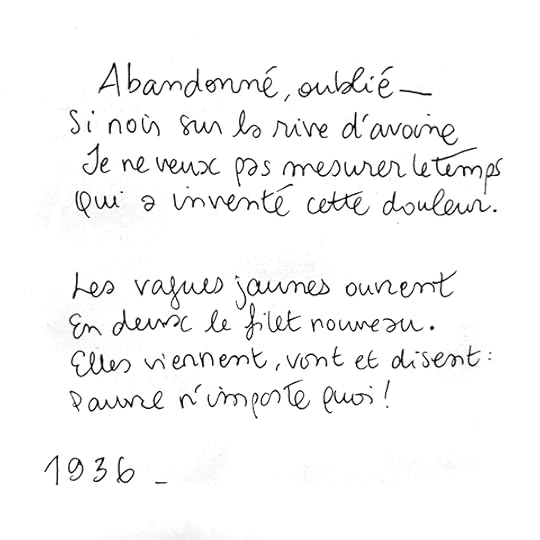 Abandonné, oublié —
Si noir sur la rive d'avoine
Je ne veux pas mesurer le temps
Qui a inventé cette douleur.
Les vagues jaunes ouvrent
En deux le filet nouveau.
Elles viennent, vont et disent :
Pauvre n'importe quoi !
1936 -